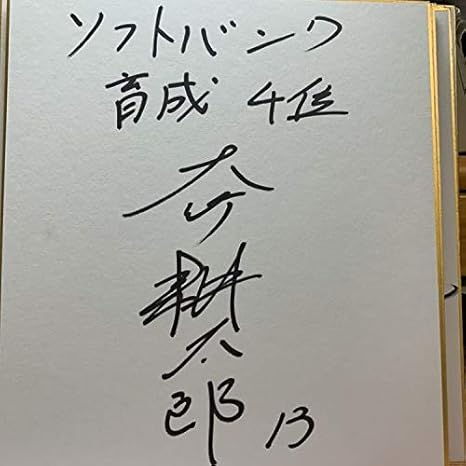 ソフトバンク
育成 4位
大竹耕太郎
13